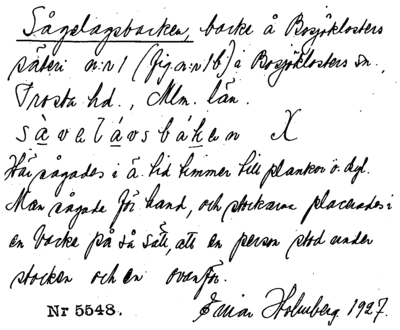 Sågelagsbacken, backe å Bosjöklosters
säteri n:r 1 (fig. n:r 1b) i Bosjöklosters sn.,
Frosta hd., Mlm. län.
såvelåvsbåken X
Här sågades i ä. tid timmer till plankor o. dyl.
Man sågade för hand, och stockarna placerades i
en backe på så sätt, att en person stod under
stocken och en ovanför.
Nr 5548. Einar Holmberg 1927.